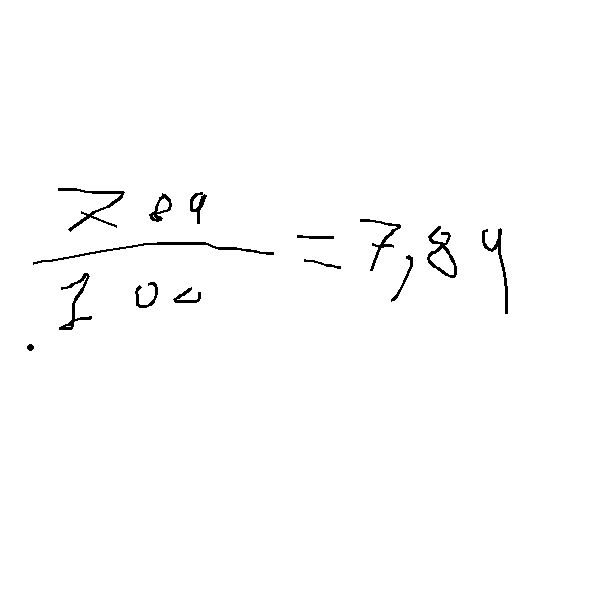 789
100
= 7,89